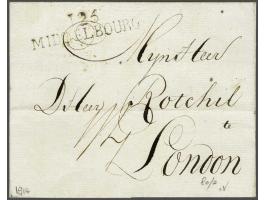 125
MIDDELBOURG
Myn Heer
D Heer Rotchil
te
London